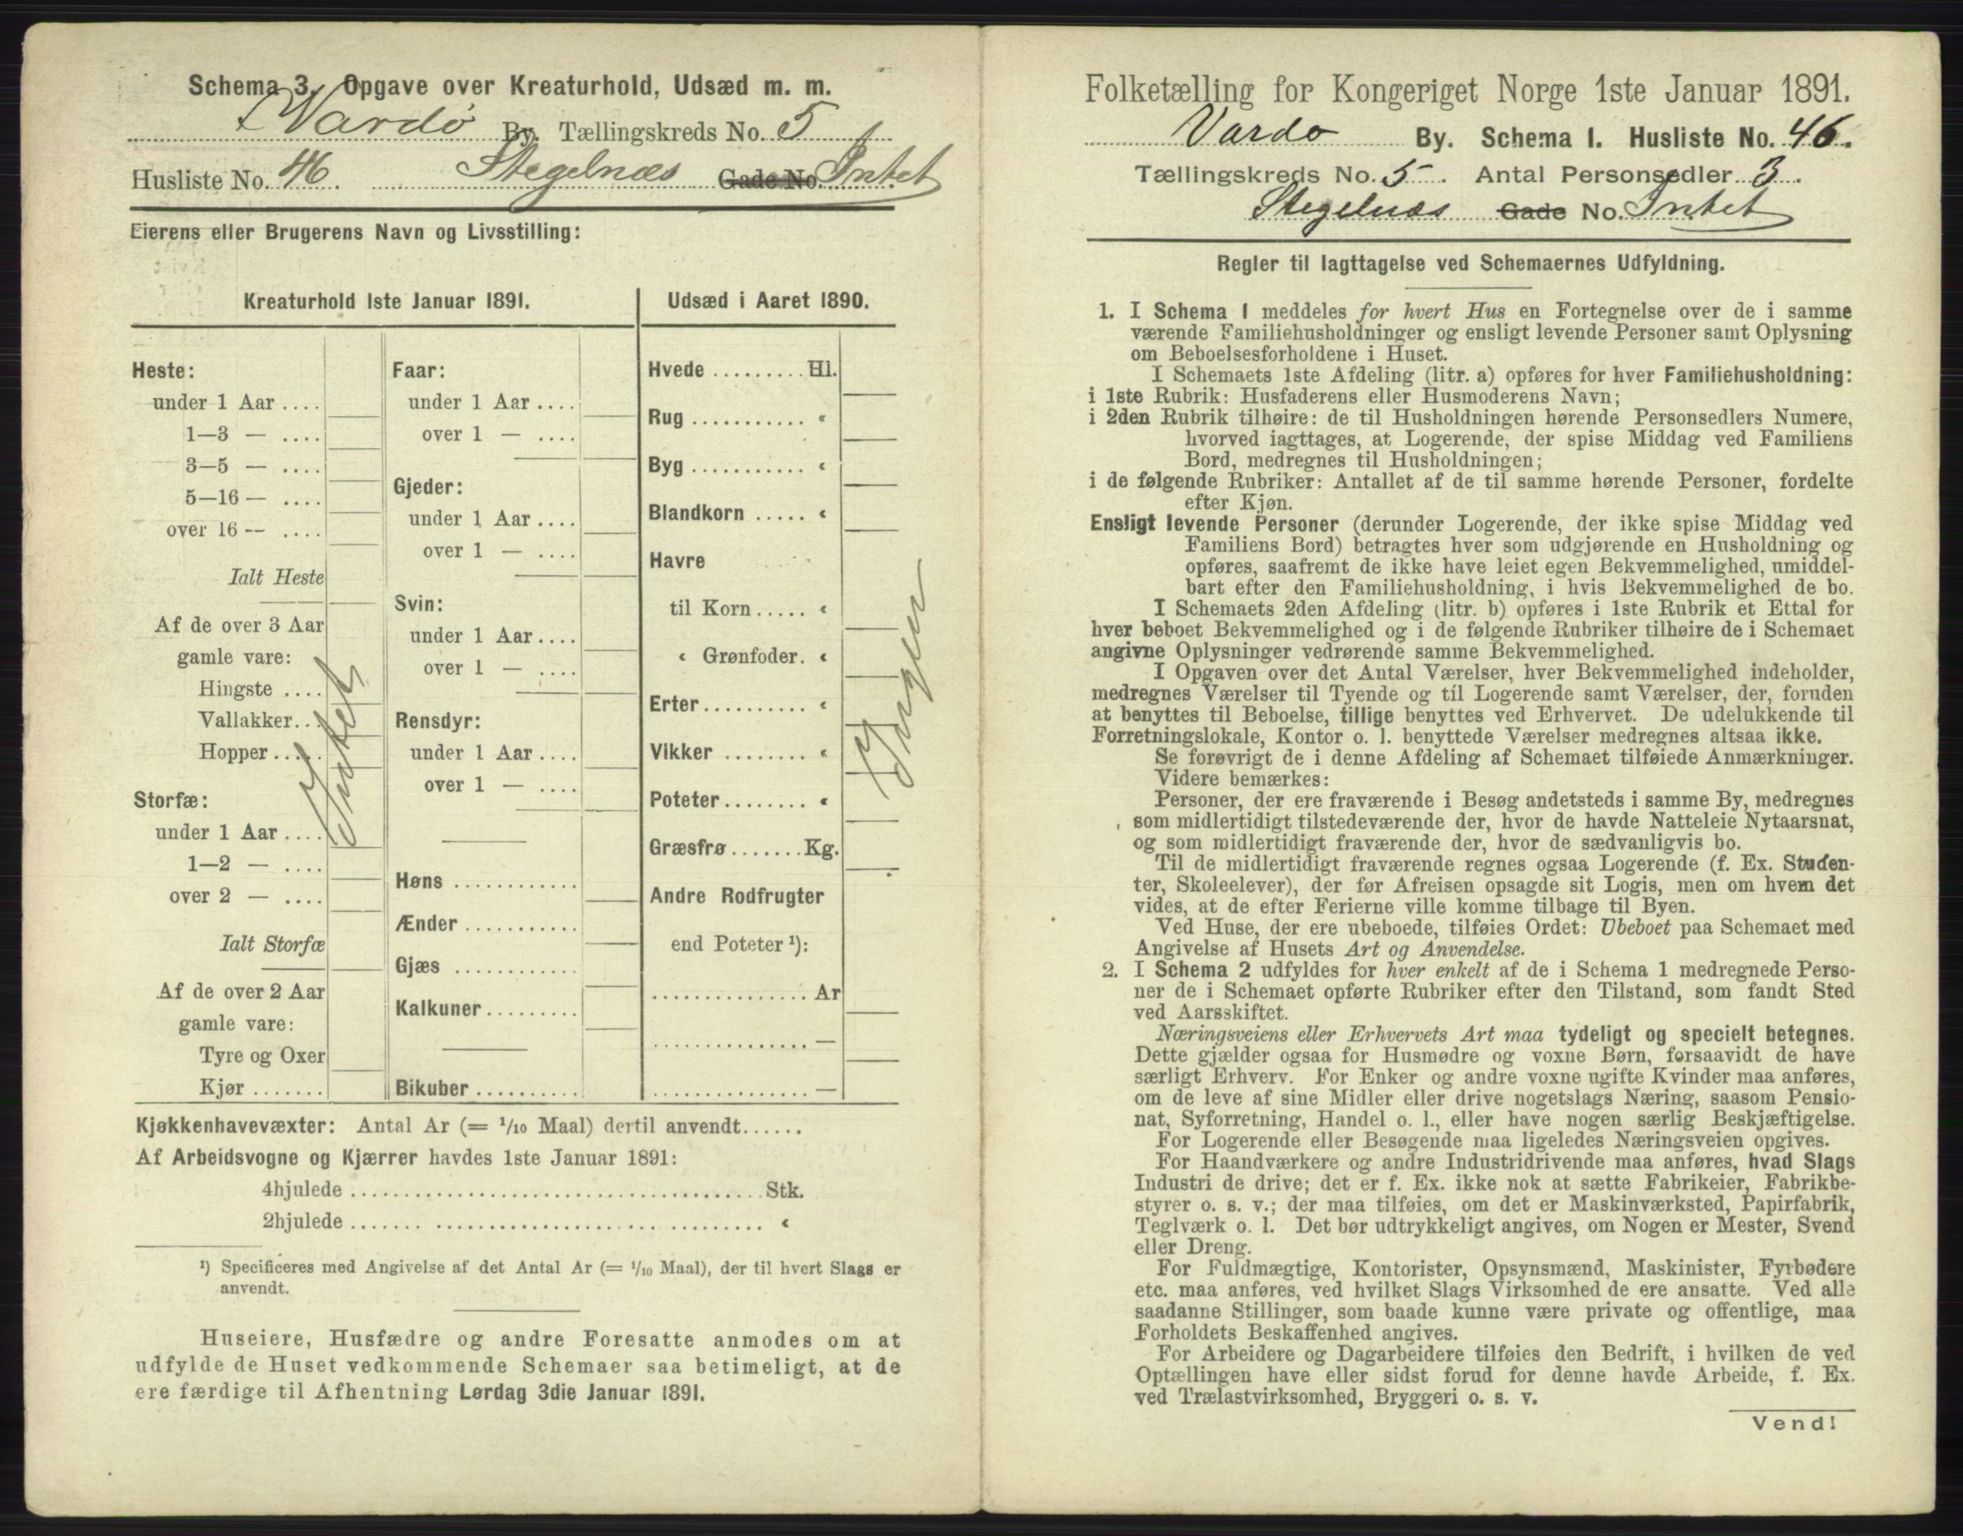 Schema 3. Opgave over Kreaturhold, Udsæd m. m.
Vardø By. Tællingskreds No. 5
Husliste No. 46. Stegelnæs Gade No. Intet
Eierens eller Brugerens Navn og Livsstilling:
Kreaturhold 1ste Januar 1891.
Heste:
under 1 Aar ....
1—3 — ....
3—5 — ....
5—16 — ....
over 16 — ....
Ialt Heste
Af de over 3 Aar
gamle vare:
Hingste ....
Vallakker...
Hopper .....
Intet
Storfæ:
under 1 Aar ....
1—2 — ....
over 2 — ....
Ialt Storfæ
Af de over 2 Aar
gamle vare:
Tyre og Oxer
Kjør .......
Faar:
under 1 Aar ....
over 1 — ....
Gjeder:
under 1 Aar ....
over 1 — ....
Svin:
under 1 Aar ....
over 1 — ....
Rensdyr:
under 1 Aar ....
over 1 — ....
Høns ...........
Ænder ...........
Gjæs ...........
Kalkuner .........
Bikuber ..........
Udsæd i Aaret 1890.
Hvede ......... Hl.
Rug ........... «
Byg ........... «
Blandkorn ..... «
Havre
til Korn ..... «
« Grønfoder. «
Erter.......... «
Vikker ........ «
Poteter........ «
Græsfrø....... Kg.
Andre Rodfrugter
end Poteter ¹):
............... Ar
............... —
............... —
Ingen
Kjøkkenhavevæxter: Antal Ar (= 1/10 Maal) dertil anvendt......
Af Arbeidsvogne og Kjærrer havdes 1ste Januar 1891:
4hjulede ....................................... Stk.
2hjulede ....................................... «
¹) Specificeres med Angivelse af det Antal Ar (= 1/10 Maal), der til hvert Slags er
anvendt.
Huseiere, Husfædre og andre Foresatte anmodes om at
udfylde de Huset vedkommende Schemaer saa betimeligt, at de
ere færdige til Afhentning Lørdag 3die Januar 1891.
Folketælling for Kongeriget Norge 1ste Januar 1891.
Vardo By. Schema 1. Husliste No. 46.
Tællingskreds No. 5. Antal Personsedler 3.
Stegelnæs Gade No. Intet
Regler til Iagttagelse ved Schemaernes Udfyldning.
1. I Schema 1 meddeles for hvert Hus en Fortegnelse over de i samme
værende Familiehusholdninger og ensligt levende Personer samt Oplysning
om Beboelsesforholdene i Huset.
I Schemaets 1ste Afdeling (litr. a) opføres for hver Familiehusholdning:
i 1ste Rubrik: Husfaderens eller Husmoderens Navn;
i 2den Rubrik tilhøire: de til Husholdningen hørende Personsedlers Numere,
hvorved iagttages, at Logerende, der spise Middag ved Familiens
Bord, medregnes til Husholdningen;
i de følgende Rubriker: Antallet af de til samme hørende Personer, fordelte
efter Kjøn.
Ensligt levende Personer (derunder Logerende, der ikke spise Middag ved
Familiens Bord) betragtes hver som udgjørende en Husholdning og
opføres, saafremt de ikke have leiet egen Bekvemmelighed, umiddel-
bart efter den Familiehusholdning, i hvis Bekvemmelighed de bo.
I Schemaets 2den Afdeling (litr. b) opføres i 1ste Rubrik et Ettal for
hver beboet Bekvemmelighed og i de følgende Rubriker tilhøire de i Schemaet
angivne Oplysninger vedrørende samme Bekvemmelighed.
I Opgaven over det Antal Værelser, hver Bekvemmelighed indeholder,
medregnes Værelser til Tyende og til Logerende samt Værelser, der, foruden
at benyttes til Beboelse, tillige benyttes ved Erhvervet. De udelukkende til
Forretningslokale, Kontor o. l. benyttede Værelser medregnes altsaa ikke.
Se forøvrigt de i denne Afdeling af Schemaet tilføiede Anmærkninger.
Videre bemærkes:
Personer, der ere fraværende i Besøg andetsteds i samme By, medregnes
som midlertidigt tilstedeværende der, hvor de havde Natteleie Nytaarsnat,
og som midlertidigt fraværende der, hvor de sædvanligvis bo.
Til de midlertidigt fraværende regnes ogsaa Logerende (f. Ex. Studen-
ter, Skoleelever), der før Afreisen opsagde sit Logis, men om hvem det
vides, at de efter Ferierne ville komme tilbage til Byen.
Ved Huse, der ere ubeboede, tilføies Ordet: Ubeboet paa Schemaet med
Angivelse af Husets Art og Anvendelse.
2. I Schema 2 udfyldes for hver enkelt af de i Schema 1 medregnede Perso-
ner de i Schemaet opførte Rubriker efter den Tilstand, som fandt Sted
ved Aarsskiftet.
Næringsveiens eller Erhvervets Art maa tydeligt og specielt betegnes.
Dette gjælder ogsaa for Husmødre og voxne Børn, forsaavidt de have
særligt Erhverv. For Enker og andre voxne ugifte Kvinder maa anføres,
om de leve af sine Midler eller drive nogetslags Næring, saasom Pensio-
nat, Syforretning, Handel o. l., eller have nogen særlig Beskjæftigelse.
For Logerende eller Besøgende maa ligeledes Næringsveien opgives.
For Haandværkere og andre Industridrivende maa anføres, hvad Slags
Industri de drive; det er f. Ex. ikke nok at sætte Fabrikeier, Fabrikbe-
styrer o. s. v.; der maa tilføies, om det er Maskinværksted, Papirfabrik,
Teglværk o. l. Det bør udtrykkeligt angives, om Nogen er Mester, Svend
eller Dreng.
For Fuldmægtige, Kontorister, Opsynsmænd, Maskinister, Fyrbødere
etc. maa anføres, ved hvilket Slags Virksomhed de ere ansatte. Ved alle
saadanne Stillinger, som baade kunne være private og offentlige, maa
Forholdets Beskaffenhed angives.
For Arbeidere og Dagarbeidere tilføies den Bedrift, i hvilken de ved
Optællingen have eller sidst forud for denne havde Arbeide, f. Ex.
ved Trælastvirksomhed, Bryggeri o. s. v.
Vend!